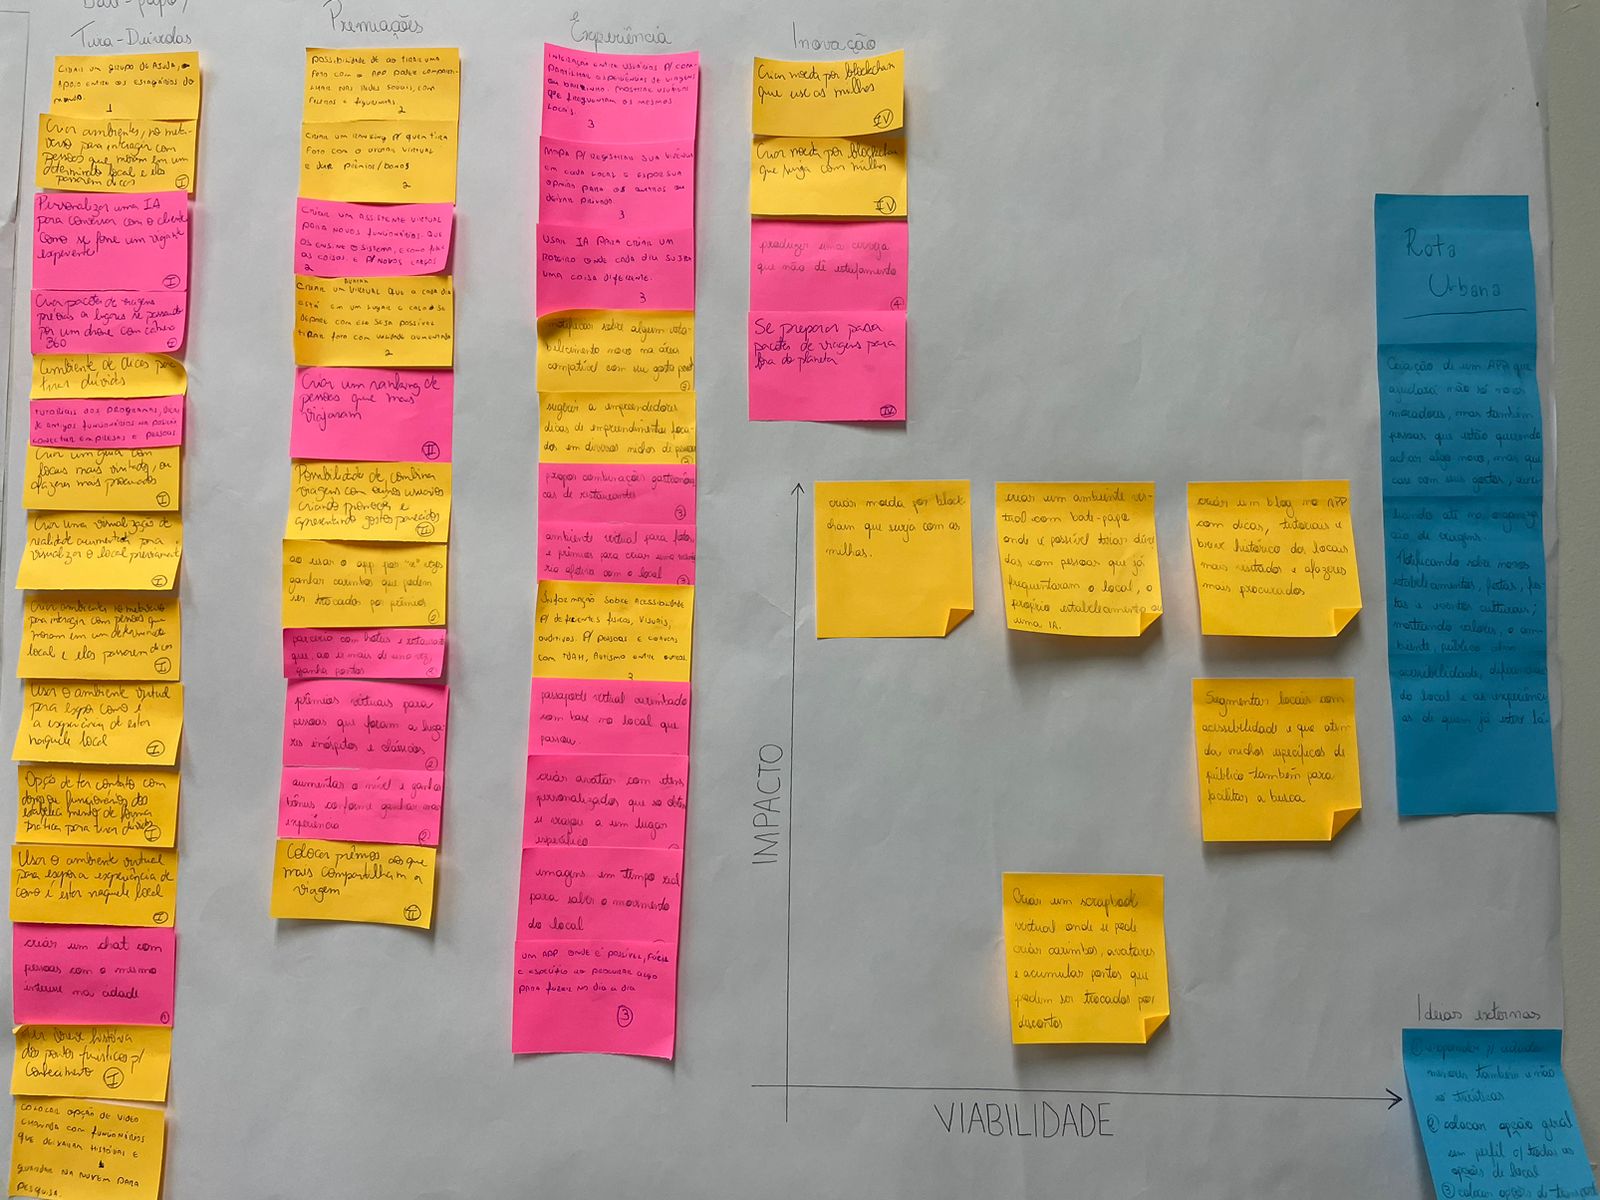 Bate-papo/
Tira-Dúvidas
CRIAR UM GRUPO DE AJUDA,
APOIO ENTRE OS ESTAGIÁRIOS DO
MUNDO.
1
Criar ambientes, no meta-
verso para interagir com
pessoas que moram em um
determinado local e eles
passarem dicas
I
Personalizar uma IA
para conversar com o cliente
como se fosse um viajante
experiente
I
Criar pacotes de viagens
prévias a lugares se passando
por um drone com câmera
360
I
Ambiente de dicas para
tirar dúvidas
TUTORIAIS DOS PROGRAMAS, DICAS
DE ANTIGOS FUNCIONÁRIOS NA POSIÇÃO
CONECTAR EMPRESAS E PESSOAS
Criar um guia com
locais mais visitados, ou
afazeres mais procurados
I
Criar uma visualização de
realidade aumentada para
visualizar o local previamente
I
Criar ambientes no metaverso
para interagir com pessoas que
moram em um determinado
local e eles passarem dicas
I
Usar o ambiente virtual
para expor como é
a experiência de estar
naquele local
I
Opção de ter contato com
donos ou funcionários dos
estabelecimento de forma
prática para tirar dúvidas
I
Usar o ambiente virtual
para expor a experiência de
como é estar naquele local
I
criar um chat com
pessoas com o mesmo
interesse na cidade
1
Ter breve história
dos pontos turísticos p/
conhecimento
I
COLOCAR OPÇÃO DE VIDEO
CHAMADA COM FUNCIONÁRIOS
QUE DEIXARAM HISTÓRIAS E
GUARDAR NA NUVEM PARA
PESQUISA.
Premiações
POSSIBILIDADE DE AO TIRAR UMA
FOTO COM O APP PODER COMPARTI-
LHAR NAS REDES SOCIAIS, COM
FILTROS E FIGURINHAS.
2
CRIAR UM RANKING P/ QUEM TIRA
FOTO COM O AVATAR VIRTUAL
E DAR PRÊMIOS/BONUS
2
CRIAR UM ASSISTENTE VIRTUAL
PARA NOVOS FUNCIONÁRIOS. QUE
OS ENSINE O SISTEMA, E COMO FAZER
AS COISAS. E P/ NOVOS CARGOS
2
AVATAR
CRIAR UM VIRTUAL QUE A CADA DIA
ESTÁ EM UM LUGAR E CASO SE
DEPARE COM ELE SEJA POSSÍVEL
TIRAR FOTO COM REALIDADE AUMENTADA
2
Criar um ranking de
pessoas que mais
viajaram
II
Possibilidade de combinar
viagens com outros usuários
criando promoções e
apresentando gostos parecidos
II
ao usar o app por "x" vezes
ganhar carimbos que podem
ser trocados por prêmios
2
parceria com hoteis e restaurantes
que ao ir mais de uma vez
ganha pontos
2
prêmios virtuais para
pessoas que foram a luga-
res inóspitos e clássicos
2
aumentar o nível e ganhar
bônus conforme ganhar mais
experiência
2
Colocar prêmios aos que
mais compartilham a
viagem
II
Experiência
INTERAÇÃO ENTRE USUÁRIOS P/ COM-
PARTILHAR EXPERIÊNCIAS DE VIAGENS
OU BARZINHO. MOSTRAR USUÁRIOS
QUE FREQUENTAM OS MESMOS
LOCAIS.
3
MAPA P/ REGISTRAR SUA VIVÊNCIA
EM CADA LOCAL E EXPOR SUA
OPINIÃO PARA OS OUTROS OU
DEIXAR PRIVADO.
3
USAR IA PARA CRIAR UM
ROTEIRO ONDE CADA DIA SUGIRA
UMA COISA DIFERENTE.
3
notificar sobre algum esta-
belecimento novo na área
compatível com seu gosto
3
sugerir a empreendedores
dicas de empreendimentos foca-
dos em diversos nichos de pessoas
3
propor combinações gastronômi-
cas de restaurantes
3
ambiente virtual para fotos
e prêmios para criar uma memó-
ria afetiva com o local
3
INFORMAÇÃO SOBRE ACESSIBILIDADE
P/ DEFICIENTES FÍSICOS, VISUAIS,
AUDITIVOS. P/ PESSOAS E CRIANÇAS
COM TDAH, AUTISMO ENTRE OUTROS.
3
passaporte virtual carimbado
com base no local que
passou.
criar avatar com itens
personalizados que se obtém
se viajou a um lugar
específico
imagens em tempo real
para saber o movimento
do local
UM APP ONDE É POSSÍVEL, FÁCIL
E ESPECÍFICO AO PROCURAR ALGO
PARA FAZER NO DIA A DIA
3
Inovação
Criar moeda por blockchain
que use as milhas
IV
Criar moeda por blockchain
que surja com milhas
IV
produzir uma cerveja
que não dê estufamento
4
Se preparar para
pacotes de viagens para
fora do planeta
IV
IMPACTO
VIABILIDADE
criar moeda por block
chain que surja com as
milhas.
criar um ambiente vir-
tual com bate-papo
onde é possível tirar dúvi
das com pessoas que já
frequentaram o local, o
próprio estabelecimento ou
uma IA.
criar um blog no APP
com dicas, tutoriais e
breve histórico dos locais
mais visitados e afazeres
mais procurados
Segmentar locais com
acessibilidade e que aten
da nichos específicos de
público também para
facilitar a busca
Criar um scrapbook
virtual onde se pode
criar carimbos, avatares
e acumular pontos que
podem ser trocados por
descontos
Rota
Urbana
Criação de um APP que
ajudará não só novos
moradores, mas também
pessoas que estão querendo
achar algo novo, mas que
case com seus gostos, auxi
liando até na organiza
ção de viagens.
Notificando sobre novos
estabelecimentos, festas, fes-
tas e eventos culturais;
mostrando valores, o am
biente, público alvo
acessibilidade, diferenciais
do local e as experiênci
as de quem já esteve lá.
Ideias externas
cidades
menores também e não
só turísticas
2 colocar opção geral
sem perfil c/ todas as
opções de local
3 colocar opções de transporte